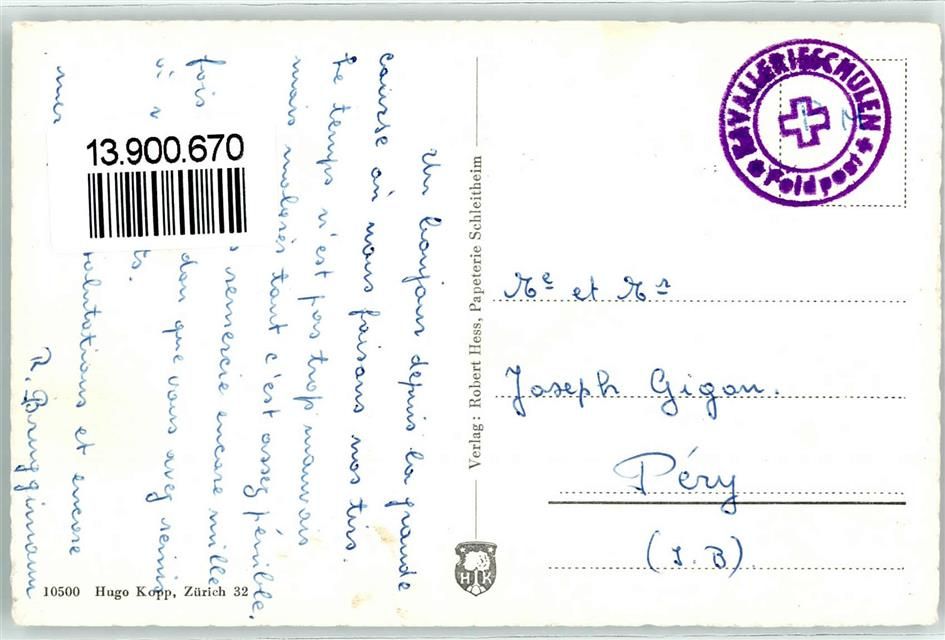 Un bonjour depuis la grande
course où nous faisons nos tirs.
Le temps n'est pas trop mauvais
mais malgrés tout c'est assez pénible.
remercie encore mille
fois don que vous avez remis
mes salutations et encore
R. Brüggimann
13.900.670
10500 Hugo Kopp, Zürich 32
Verlag: Robert Hess, Papeterie Schleitheim
HK
KAVALLERIESCHULEN
Feldpost
Me et Mr
Joseph Gigon.
Péry
(J.B)